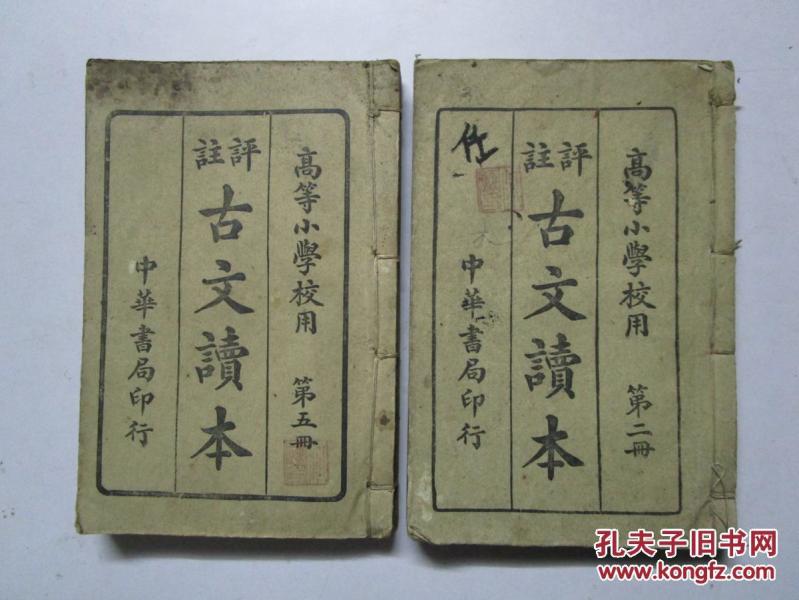 高等小學校用 第五冊
評註
古文讀本
中華書局印行
高等小學校用 第二冊
評註
古文讀本
中華書局印行
孔夫子旧书网
www.kongfz.com